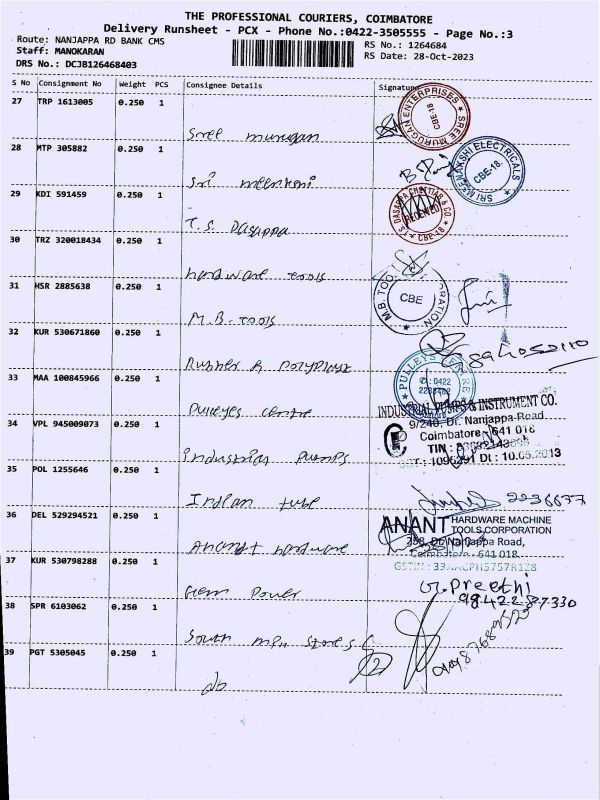 THE PROFESSIONAL COURIERS, COIMBATORE
Delivery Runsheet - PCX - Phone No.:0422-3505555 - Page No.:3
Route: NANJAPPA RD BANK CMS
RS No.: 1264684
Staff: MANOKARAN
RS Date: 28-Oct-2023
DRS No.: DCJB126468403
S No Consignment No Weight PCS Consignee Details Signature
27 TRP 1613005 0.250 1
Sree murugan
SREE MURUGAN ENTERPRISES
CBE-18
28 MTP 305882 0.250 1
Sri meenkshi
SRI MEENAKSHI ELECTRICALS
CBE-18.
29 KDI 591459 0.250 1
T.S. Dasappa
T.S. DASAPPA CHETTIAR & CO.
CBE-18
30 TRZ 320018434 0.250 1
hardware tools
31 HSR 2885638 0.250 1
M.B. Tools
CBE
32 KUR 530671860 0.250 1
Rubber & Polyplast
33 MAA 100845966 0.250 1
Pulleys centre
PULLEYS CENTRE
34 VPL 945009073 0.250 1
industrial pumps
INDUSTRIAL PUMPS & INSTRUMENT CO.
9/240, Dr. Nanjappa Road,
Coimbatore - 641 018
TIN :
Dt : 10.05.2013
35 POL 1255646 0.250 1
Indian tube
2236677
36 DEL 529294521 0.250 1
Anandt hardware
ANANT HARDWARE MACHINE
TOOLS CORPORATION
Dr. Nanjappa Road,
Coimbatore - 641 018.
37 KUR 530798288 0.250 1
Gem Power
G. Preethi
38 SPR 6103062 0.250 1
South mpn stores
39 PGT 5305045 0.250 1
do